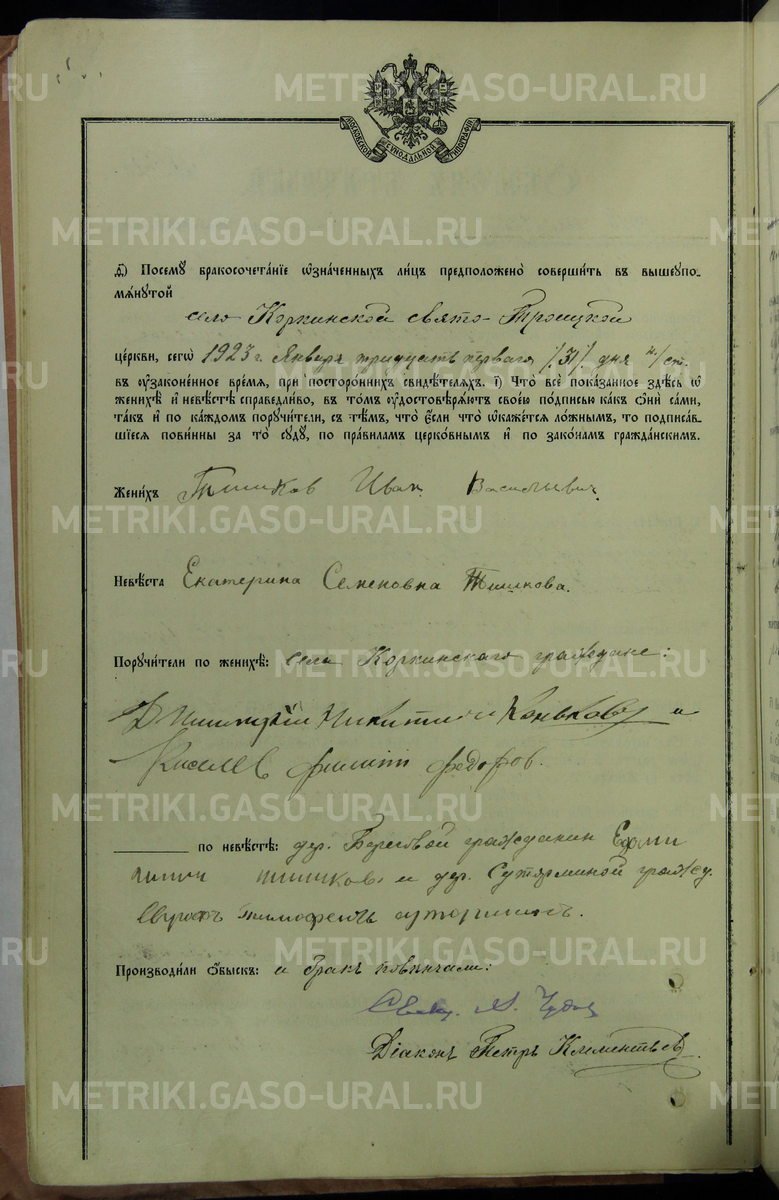 МОСКОВСКОЙ СѴНОДАЛЬНОЙ ТИПОГРАФІИ
д҃) Посемꙋ бракосочета́нїе ѡзна́ченныхъ ли́цъ предположено̀ соверши́ть въ вышеупо-
мѧ́нутой
село Коркинской свято-Троицкой
це́ркви, сегѡ̀ 1923 г. Января тридцать перваго /31/ дня н/ст.
въ ᲂузако́ненное вре́мѧ, при посторо́ннихъ свидѣ́телѧхъ. і҃) Что̀ всѐ пока́занное здѣ́сь ѡ
женихѣ̀ и҆ невѣ́стѣ справедли́во, въ то́мъ ᲂудостовѣрѧ́ютъ свое́ю по́дписью ка́къ ѻ҆нѝ са́ми,
та́къ и҆ по ка́ждомъ поручи́тели, съ тѣ́мъ, что̀ є҆́сли что̀ ѡка́жетсѧ ло́жнымъ, то подписа́в-
шїесѧ пови́нны за то̀ судꙋ̀, по пра́виламъ церко́внымъ и҆ по зако́намъ гражда́нскимъ.
Жени́хъ Тишков Иван Васильевич
Невѣ́ста Екатерина Семеновна Тишкова.
Поручи́тели по женихѣ̀: села Коркинскаго граждане:
Дмитрий Никитич Коньков и
Киселев филипп федоров.
по невѣ́стѣ: дер. Береговой гражданин
тишков и дер. Сутярминой гражд.
тимофеевъ
Производи́ли ѻ҆́быскъ: и бракъ повѣнчали:
Свящ. М. Чудов
Діаконъ Петръ Климентьев.
METRIKI.GASO-URAL.RU